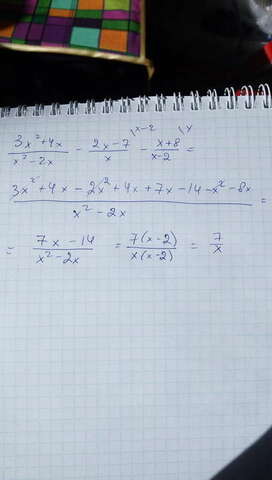 \x-2 \x
(3x²+4x)/(x²-2x) - (2x-7)/x - (x+8)/(x-2) =
(3x²+4x-2x²+4x+7x-14-x²-8x)/(x²-2x) =
= (7x-14)/(x²-2x) = (7(x-2))/(x(x-2)) = 7/x